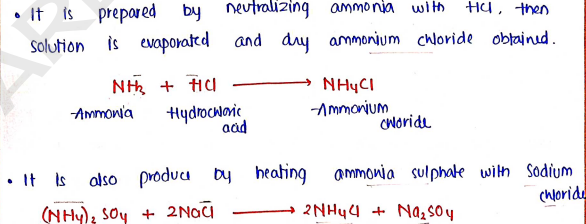 • It is prepared by neutralizing ammonia with HCl, then
solution is evaporated and dry ammonium chloride obtained.
NH3 + HCl → NH4Cl
Ammonia Hydrochloric acid Ammonium chloride
• It is also produce by heating ammonia sulphate with Sodium
chloride
(NH4)2 SO4 + 2NaCl → 2NH4Cl + Na2SO4